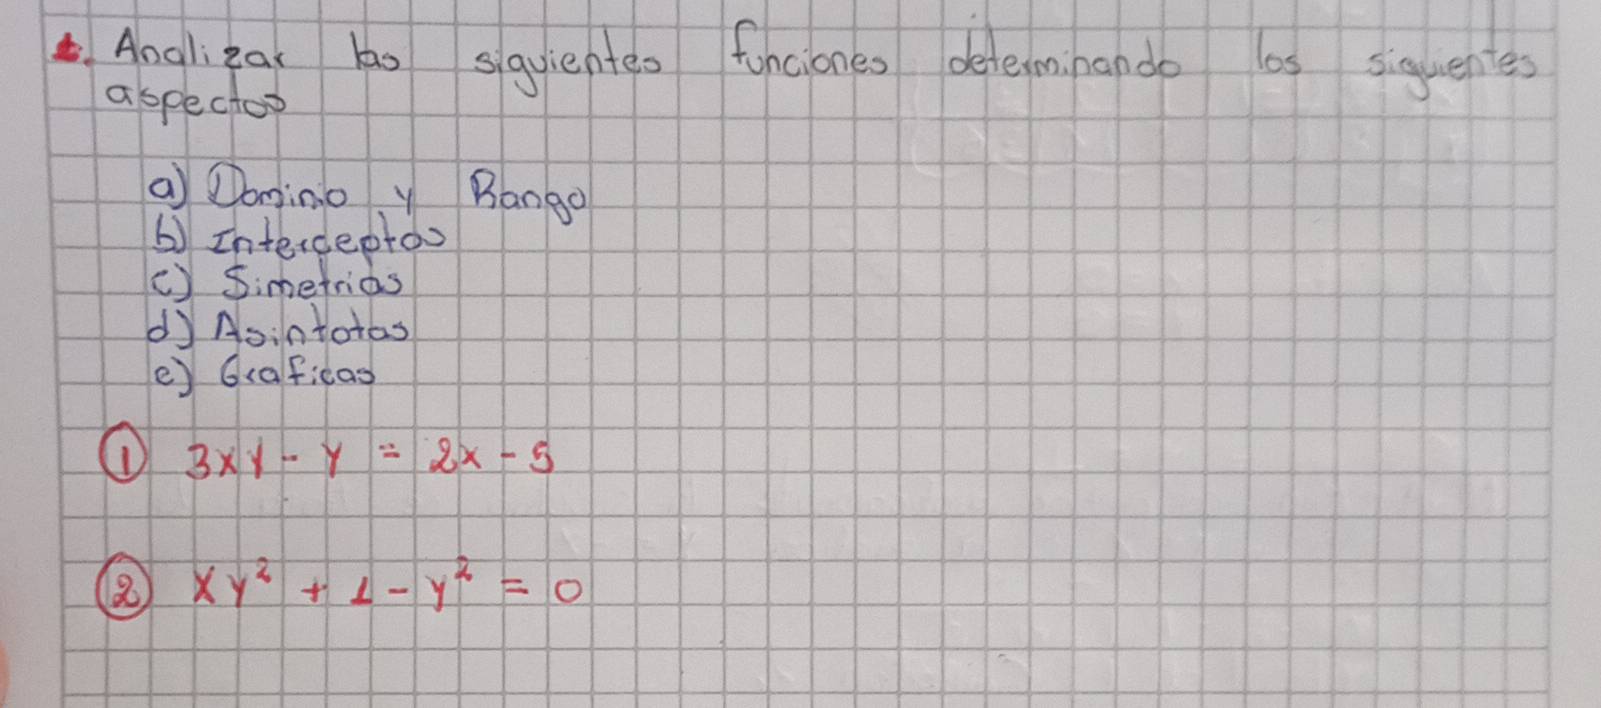 1. Analizar las siguientes funciones determinando los siguientes
aspectos
a) Dominio y Rango
b) Interceptos
c) Simetrias
d) Asintotas
e) Graficas
① 3xy - y = 2x - 5
② xy² + 1 - y² = 0